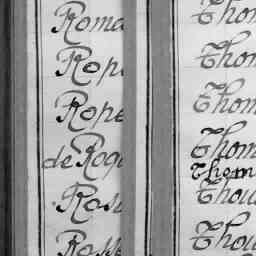 Roma
Rope
Rope
de Roqu
Rosi
Rosse
Thom
Thom
Thom
Thom
Thom
Thou
Thou